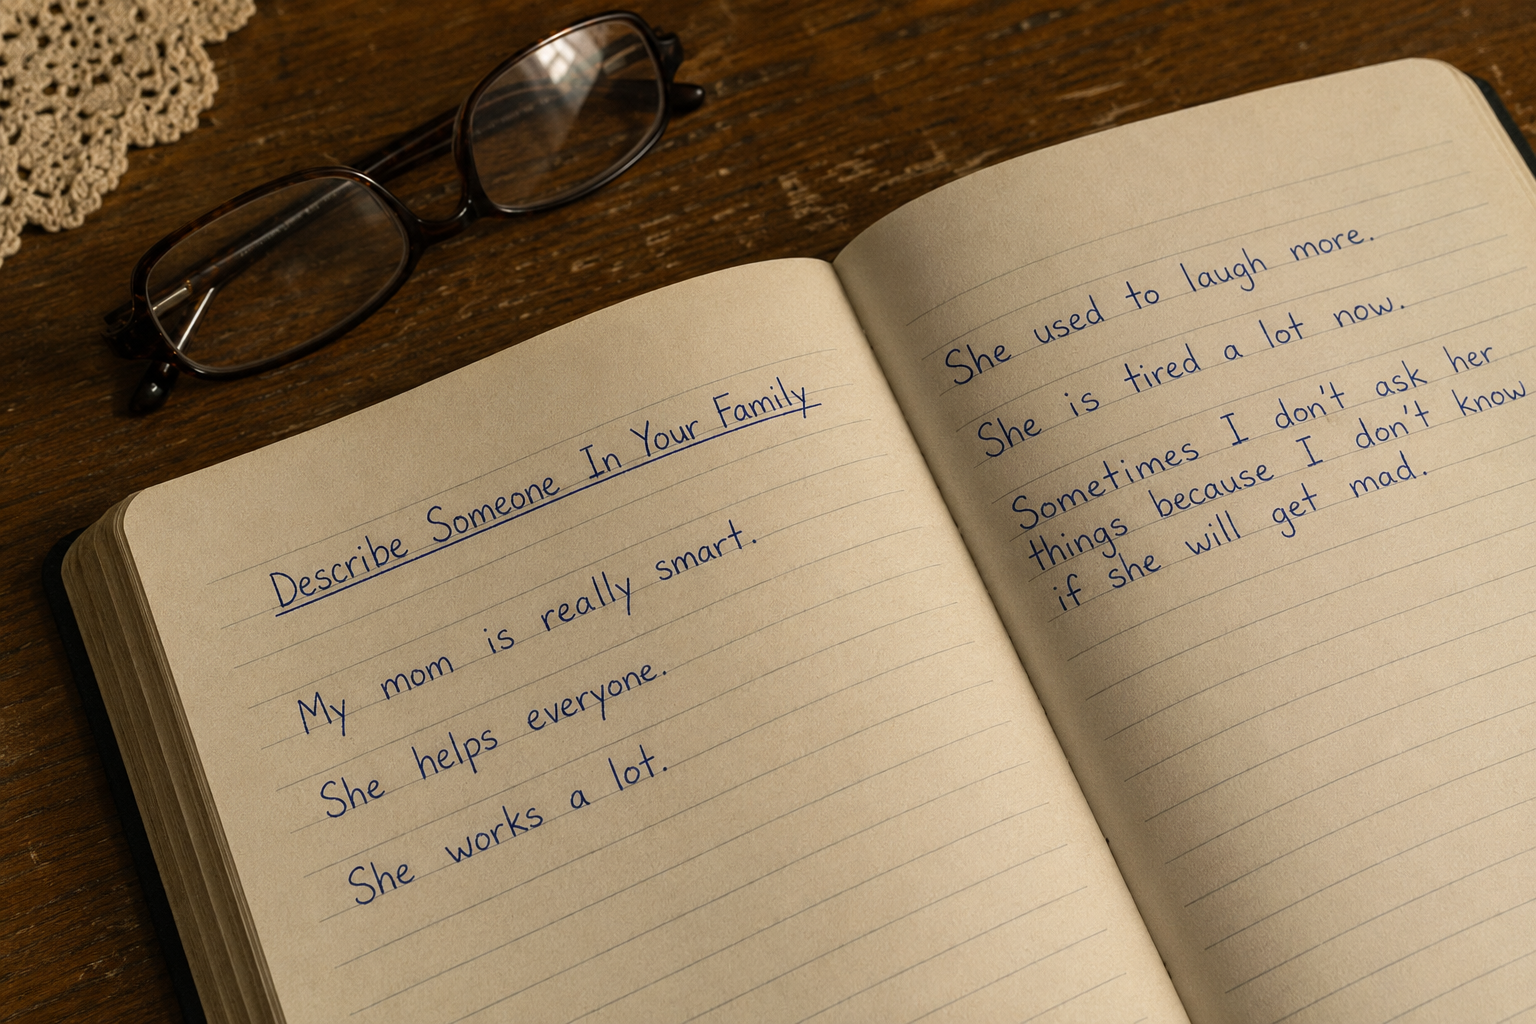 Describe Someone In Your Family
My mom is really smart.
She helps everyone.
She works a lot.
She used to laugh more.
She is tired a lot now.
Sometimes I don't ask her
things because I don't know
if she will get mad.